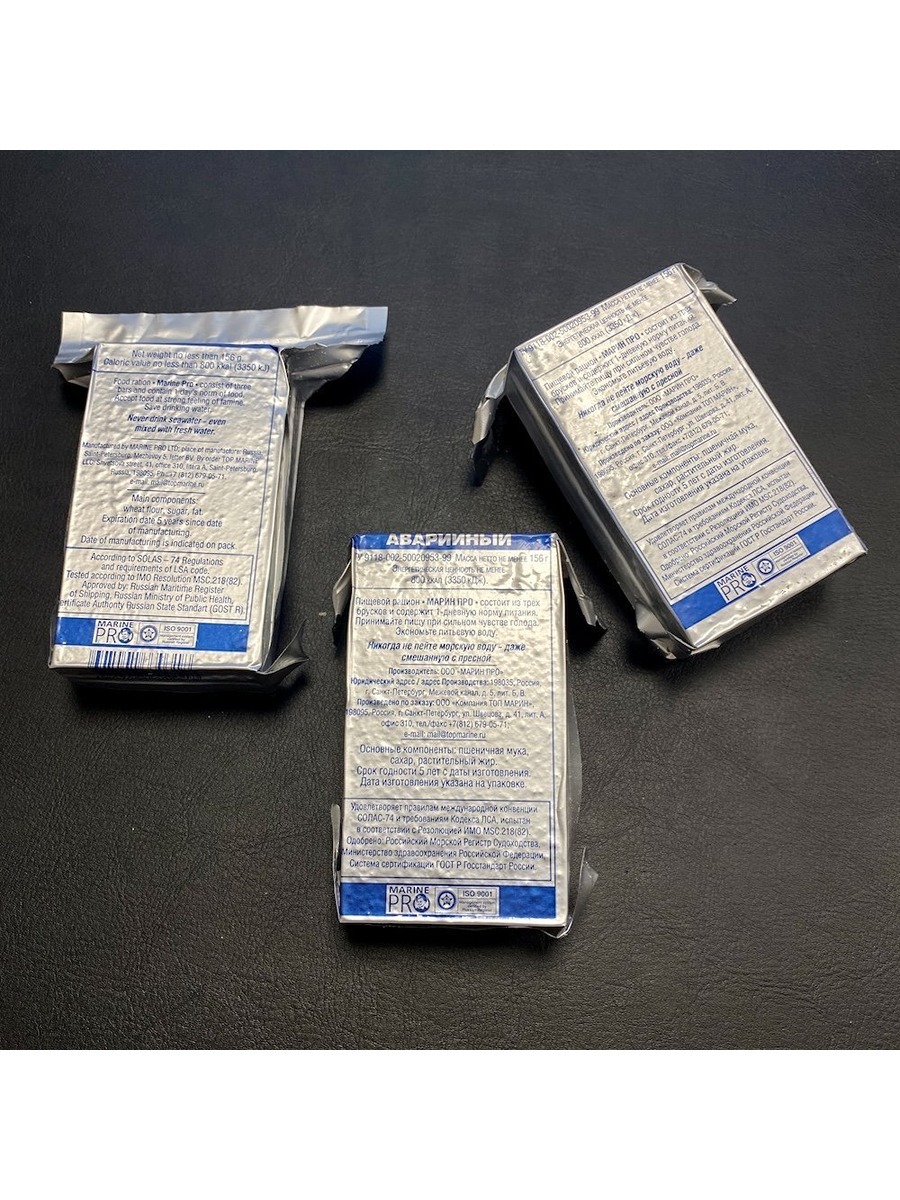 Net weight no less than 156 g.
Caloric value no less than 800 kkal (3350 kJ)
Food ration • Marine Pro • consist of three
bars and contain 1-day's norm of food.
Accept food at strong feeling of famine.
Save drinking water.
Never drink seawater – even
mixed with fresh water.
Manufactured by MARINE PRO LTD; place of manufacture: Russia,
Saint-Petersburg, Mezhevoy 5, letter BV. By order TOP MARINE
LLC, Shvetsova street, 41, office 310, litera A, Saint-Petersburg,
Russia, 198095, Ph.:+7 (812) 679-05-71;
e-mail: mail@topmarine.ru
Main components:
wheat flour, sugar, fat
Expiration date 5 years since date
of manufacturing.
Date of manufacturing is indicated on pack.
According to SOLAS – 74 Regulations
and requirements of LSA code.
Tested according to IMO Resolution MSC.218(82).
Approved by: Russian Maritime Register
of Shipping, Russian Ministry of Public Health,
ertificate Authority Russian State Standart (GOST R).
MARINE
PRO
ISO 9001
АВАРИЙНЫЙ
ТУ 9118-002-50020953-99 Масса нетто не менее 156 г
Энергетическая ценность не менее
800 ккал (3350 кДж).
Пищевой рацион • МАРИН ПРО • состоит из трёх
брусков и содержит 1-дневную норму питания.
Принимайте пищу при сильном чувстве голода.
Экономьте питьевую воду.
Никогда не пейте морскую воду – даже
смешанную с пресной.
Производитель: ООО «МАРИН ПРО»
Юридический адрес / адрес Производства: 198035, Россия,
г. Санкт-Петербург, Межевой канал, д. 5, лит. Б, В.
Произведено по заказу: ООО «Компания ТОП МАРИН»,
198095, Россия, г. Санкт-Петербург, ул. Швецова, д. 41, лит. А,
офис 310, тел./факс +7(812) 679-05-71;
e-mail: mail@topmarine.ru
Основные компоненты: пшеничная мука,
сахар, растительный жир.
Срок годности 5 лет с даты изготовления.
Дата изготовления указана на упаковке.
Удовлетворяет правилам международной конвенции
СОЛАС-74 и требованиям Кодекса ЛСА, испытан
в соответствии с Резолюцией ИМО MSC.218(82).
Одобрено: Российский Морской Регистр Судоходства,
Министерство здравоохранения Российской Федерации,
Система сертификации ГОСТ Р Госстандарт России.
MARINE
PRO
ISO 9001
У 9118-002-50020953-99 Масса нетто не менее 156 г
Энергетическая ценность не менее
800 ккал (3350 кДж).
Пищевой рацион • МАРИН ПРО • состоит из трёх
брусков и содержит 1-дневную норму питания.
Принимайте пищу при сильном чувстве голода.
Экономьте питьевую воду.
Никогда не пейте морскую воду – даже
смешанную с пресной
Производитель: ООО «МАРИН ПРО»
Юридический адрес / адрес Производства: 198035, Россия,
г. Санкт-Петербург, Межевой канал, д. 5, лит. Б, В.
Произведено по заказу: ООО «Компания ТОП МАРИН»,
198095, Россия, г. Санкт-Петербург, ул. Швецова, д. 41, лит. А,
офис 310, тел./факс +7(812) 679-05-71;
e-mail: mail@topmarine.ru
Основные компоненты: пшеничная мука,
сахар, растительный жир.
Срок годности 5 лет с даты изготовления.
Дата изготовления указана на упаковке.
Удовлетворяет правилам международной конвенции
СОЛАС-74 и требованиям Кодекса ЛСА, испытан
в соответствии с Резолюцией ИМО MSC.218(82).
Одобрено: Российский Морской Регистр Судоходства,
Министерство здравоохранения Российской Федерации,
Система сертификации ГОСТ Р Госстандарт России.
MARINE
PRO
ISO 9001